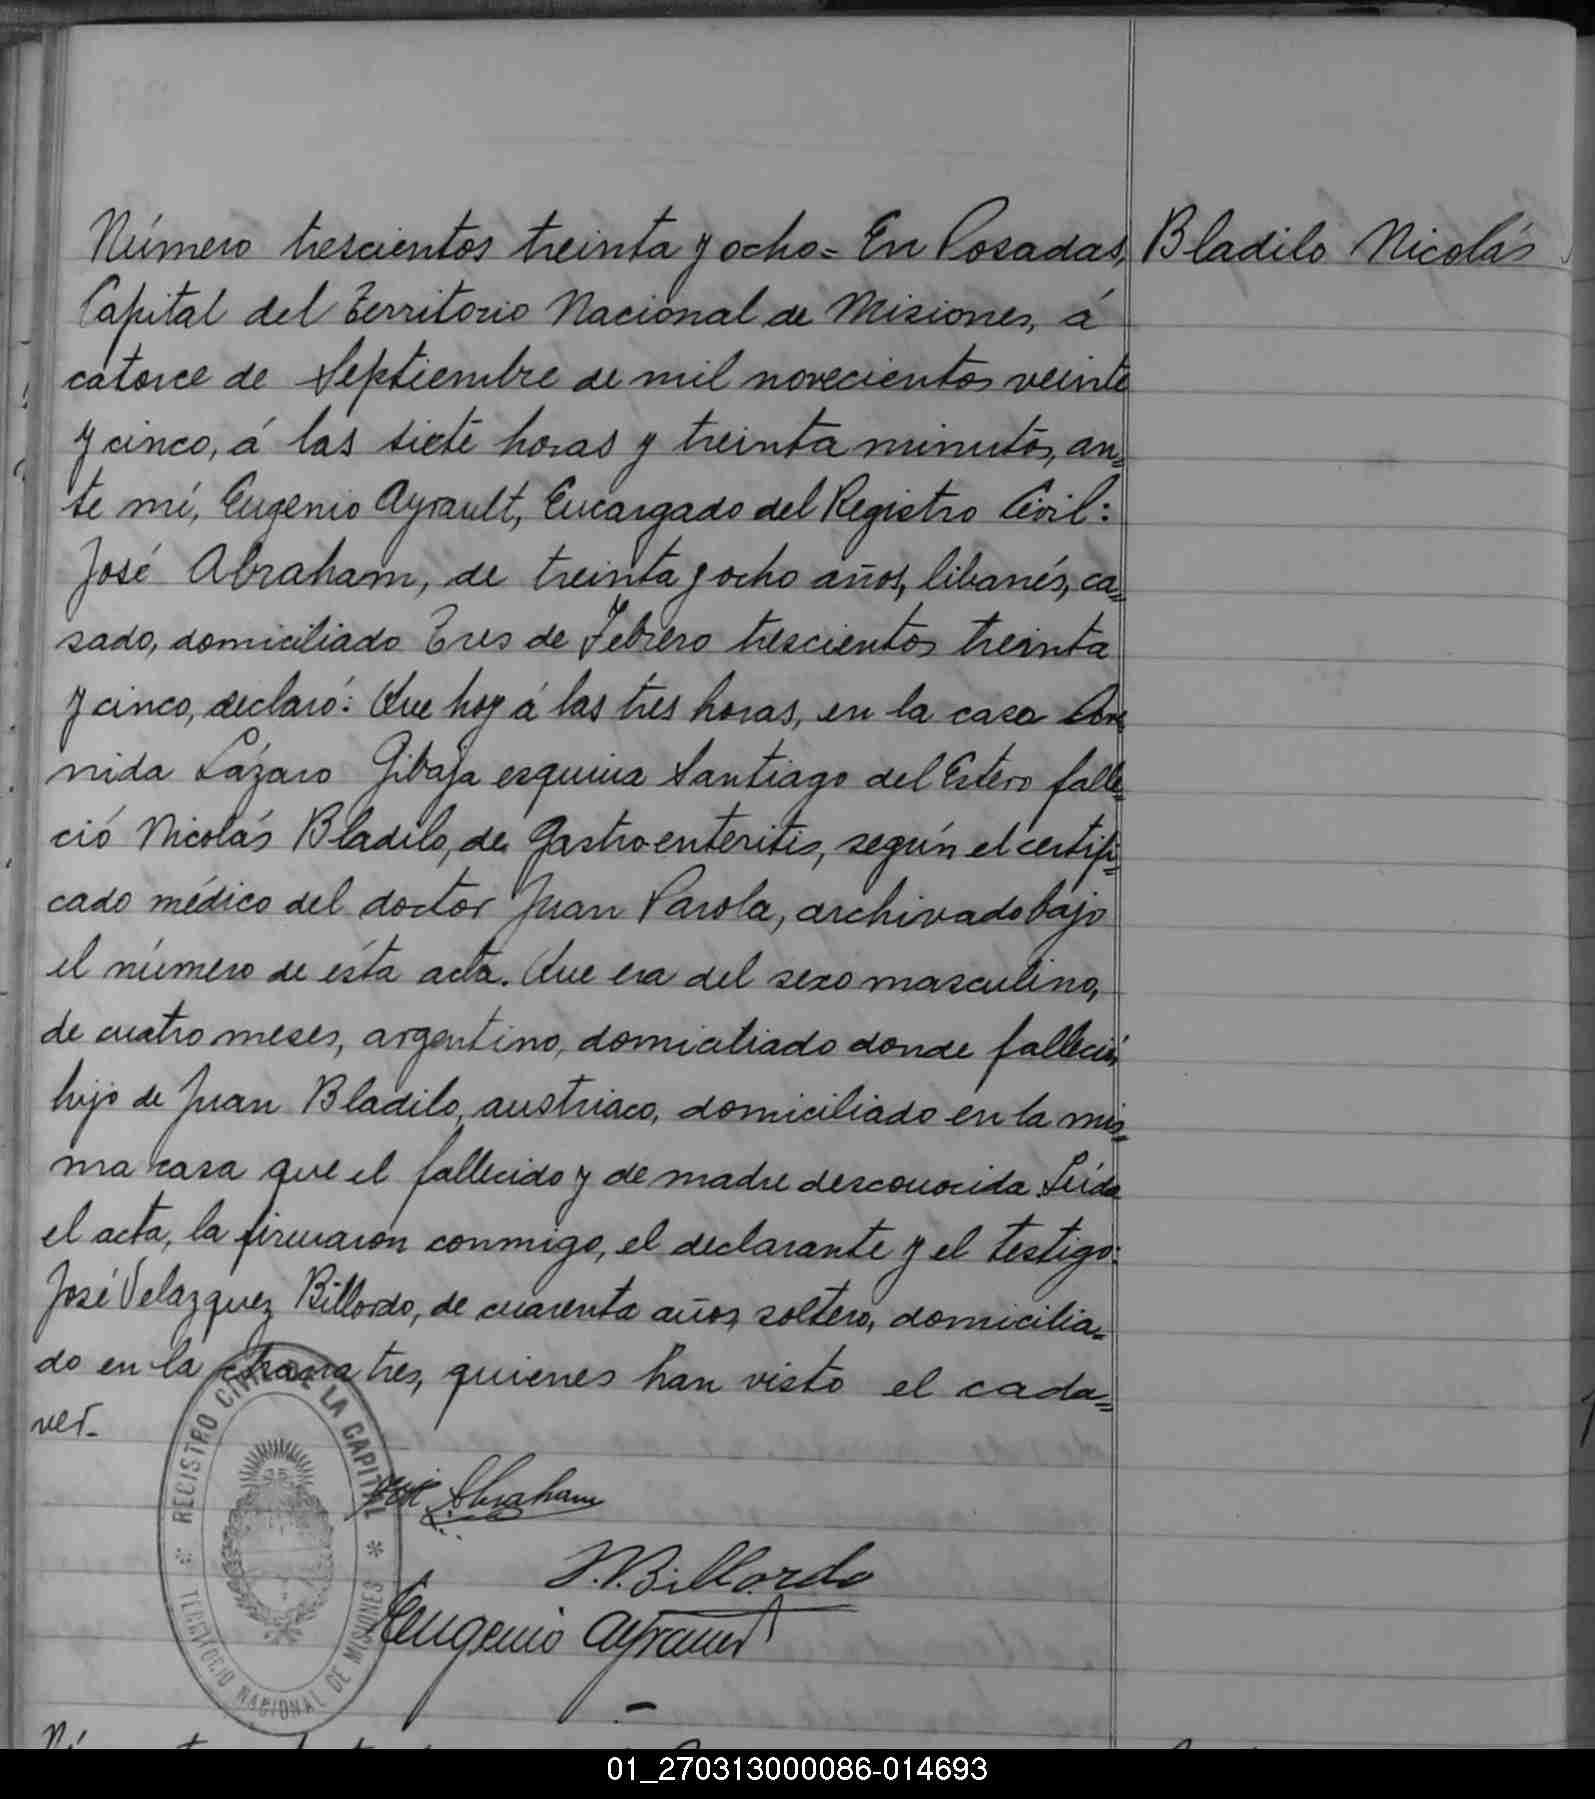 Número trescientos treinta y ocho= En Posadas,
Bladilo Nicolás
Capital del Territorio Nacional de Misiones, á
catorce de Septiembre de mil novecientos veinte
y cinco, á las siete horas y treinta minutos, an=
te mí, Eugenio Ayrault, Encargado del Registro Civil:
José Abraham, de treinta y ocho años, libanés, ca=
sado, domiciliado Tres de Febrero trescientos treinta
y cinco, declaró: Que hoy á las tres horas, en la casa Ave
nida Lázaro Gibaja esquina Santiago del Estero falle=
ció Nicolás Bladilo, de Gastroenteritis, según el certifi=
cado médico del doctor Juan Parola, archivado bajo
el número de ésta acta. Que era del sexo masculino,
de cuatro meses, argentino, domiciliado donde falleció,
hijo de Juan Bladilo, austriaco, domiciliado en la mis=
ma casa que el fallecido y de madre desconocida. Leída
el acta, la firmaron conmigo, el declarante y el testigo:
José Velazquez Billordo, de cuarenta años, soltero, domicilia=
do en la chacra tres, quienes han visto el cada=
ver.
José Abraham
J.V. Billordo
Eugenio Ayrault
REGISTRO CIVIL DE LA CAPITAL
TERRITORIO NACIONAL DE MISIONES
01_270313000086-014693